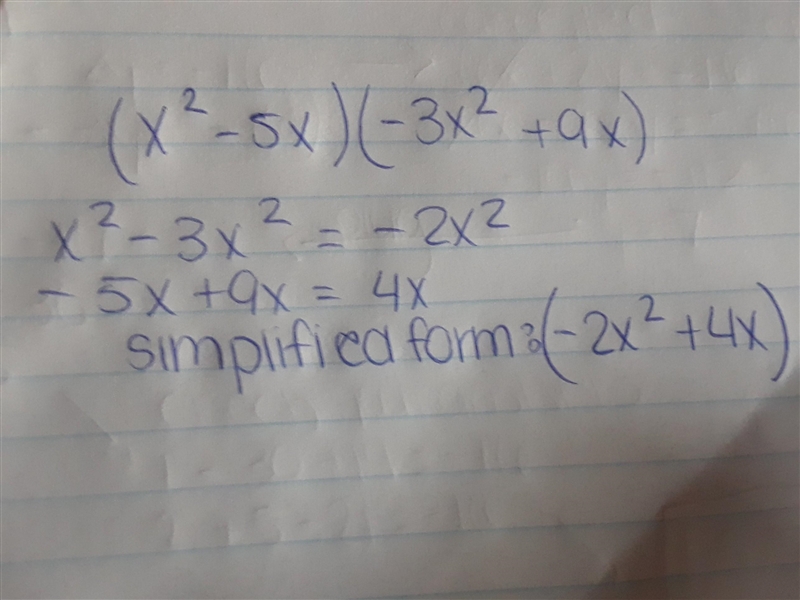 (x² - 5x)(-3x² + 9x)
x² - 3x² = -2x²
- 5x + 9x = 4x
simplified form: (-2x² + 4x)